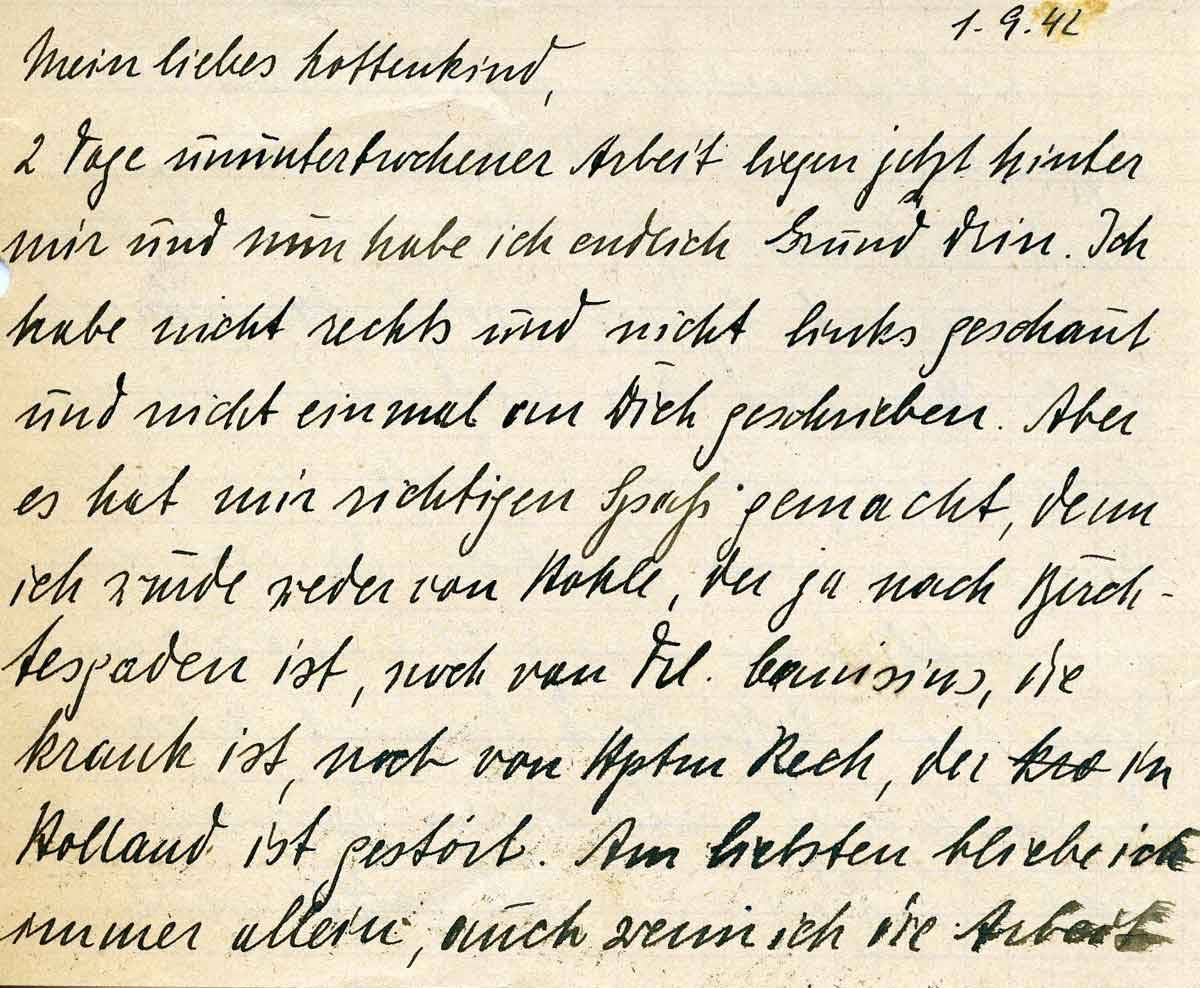 1.9.42
Mein liebes Lottenkind,
2 Tage ununterbrochener Arbeit liegen jetzt hinter
mir und nun habe ich endlich Grund drin. Ich
habe nicht rechts und nicht links geschaut
und nicht einmal an Dich geschrieben. Aber
es hat mir richtigen Spaß gemacht, denn
ich wurde weder von Kohle, der ja nach Berch-
tesgaden ist, noch von Frl. Canisius, die
krank ist, noch von Hptm Rech, der in
Holland ist gestört. Am liebsten bliebe ich
immer allein, auch wenn ich die Arbeit